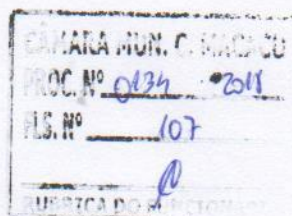 CÂMARA MUN. C. MACACU
PROC. Nº 0134 2018
FLS. Nº 107
RUBRICA DO FUNCIONÁRIO